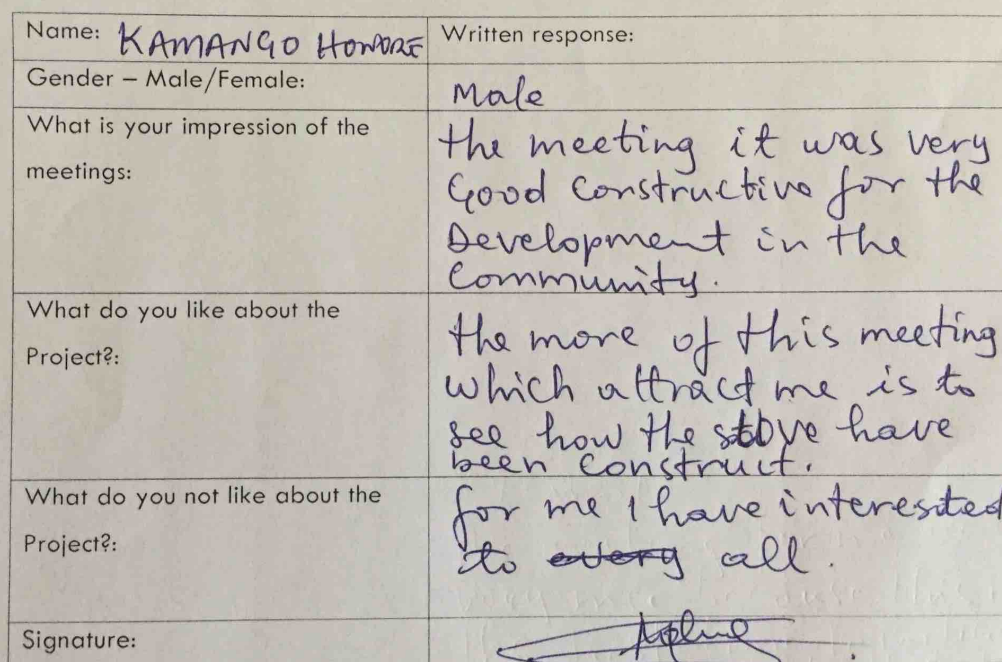 Name: KAMANGO HONORE Written response:
Gender – Male/Female: Male
What is your impression of the
meetings:
the meeting it was very
Good constructive for the
Development in the
Community.
What do you like about the
Project?:
the more of this meeting
which attract me is to
see how the stove have
been construct.
What do you not like about the
Project?:
for me I have interested
to every all.
Signature: